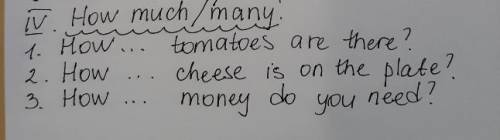 IV. How much/many.
1. How... tomatoes are there?
2. How ... cheese is on the plate?
3. How ... money do you need?